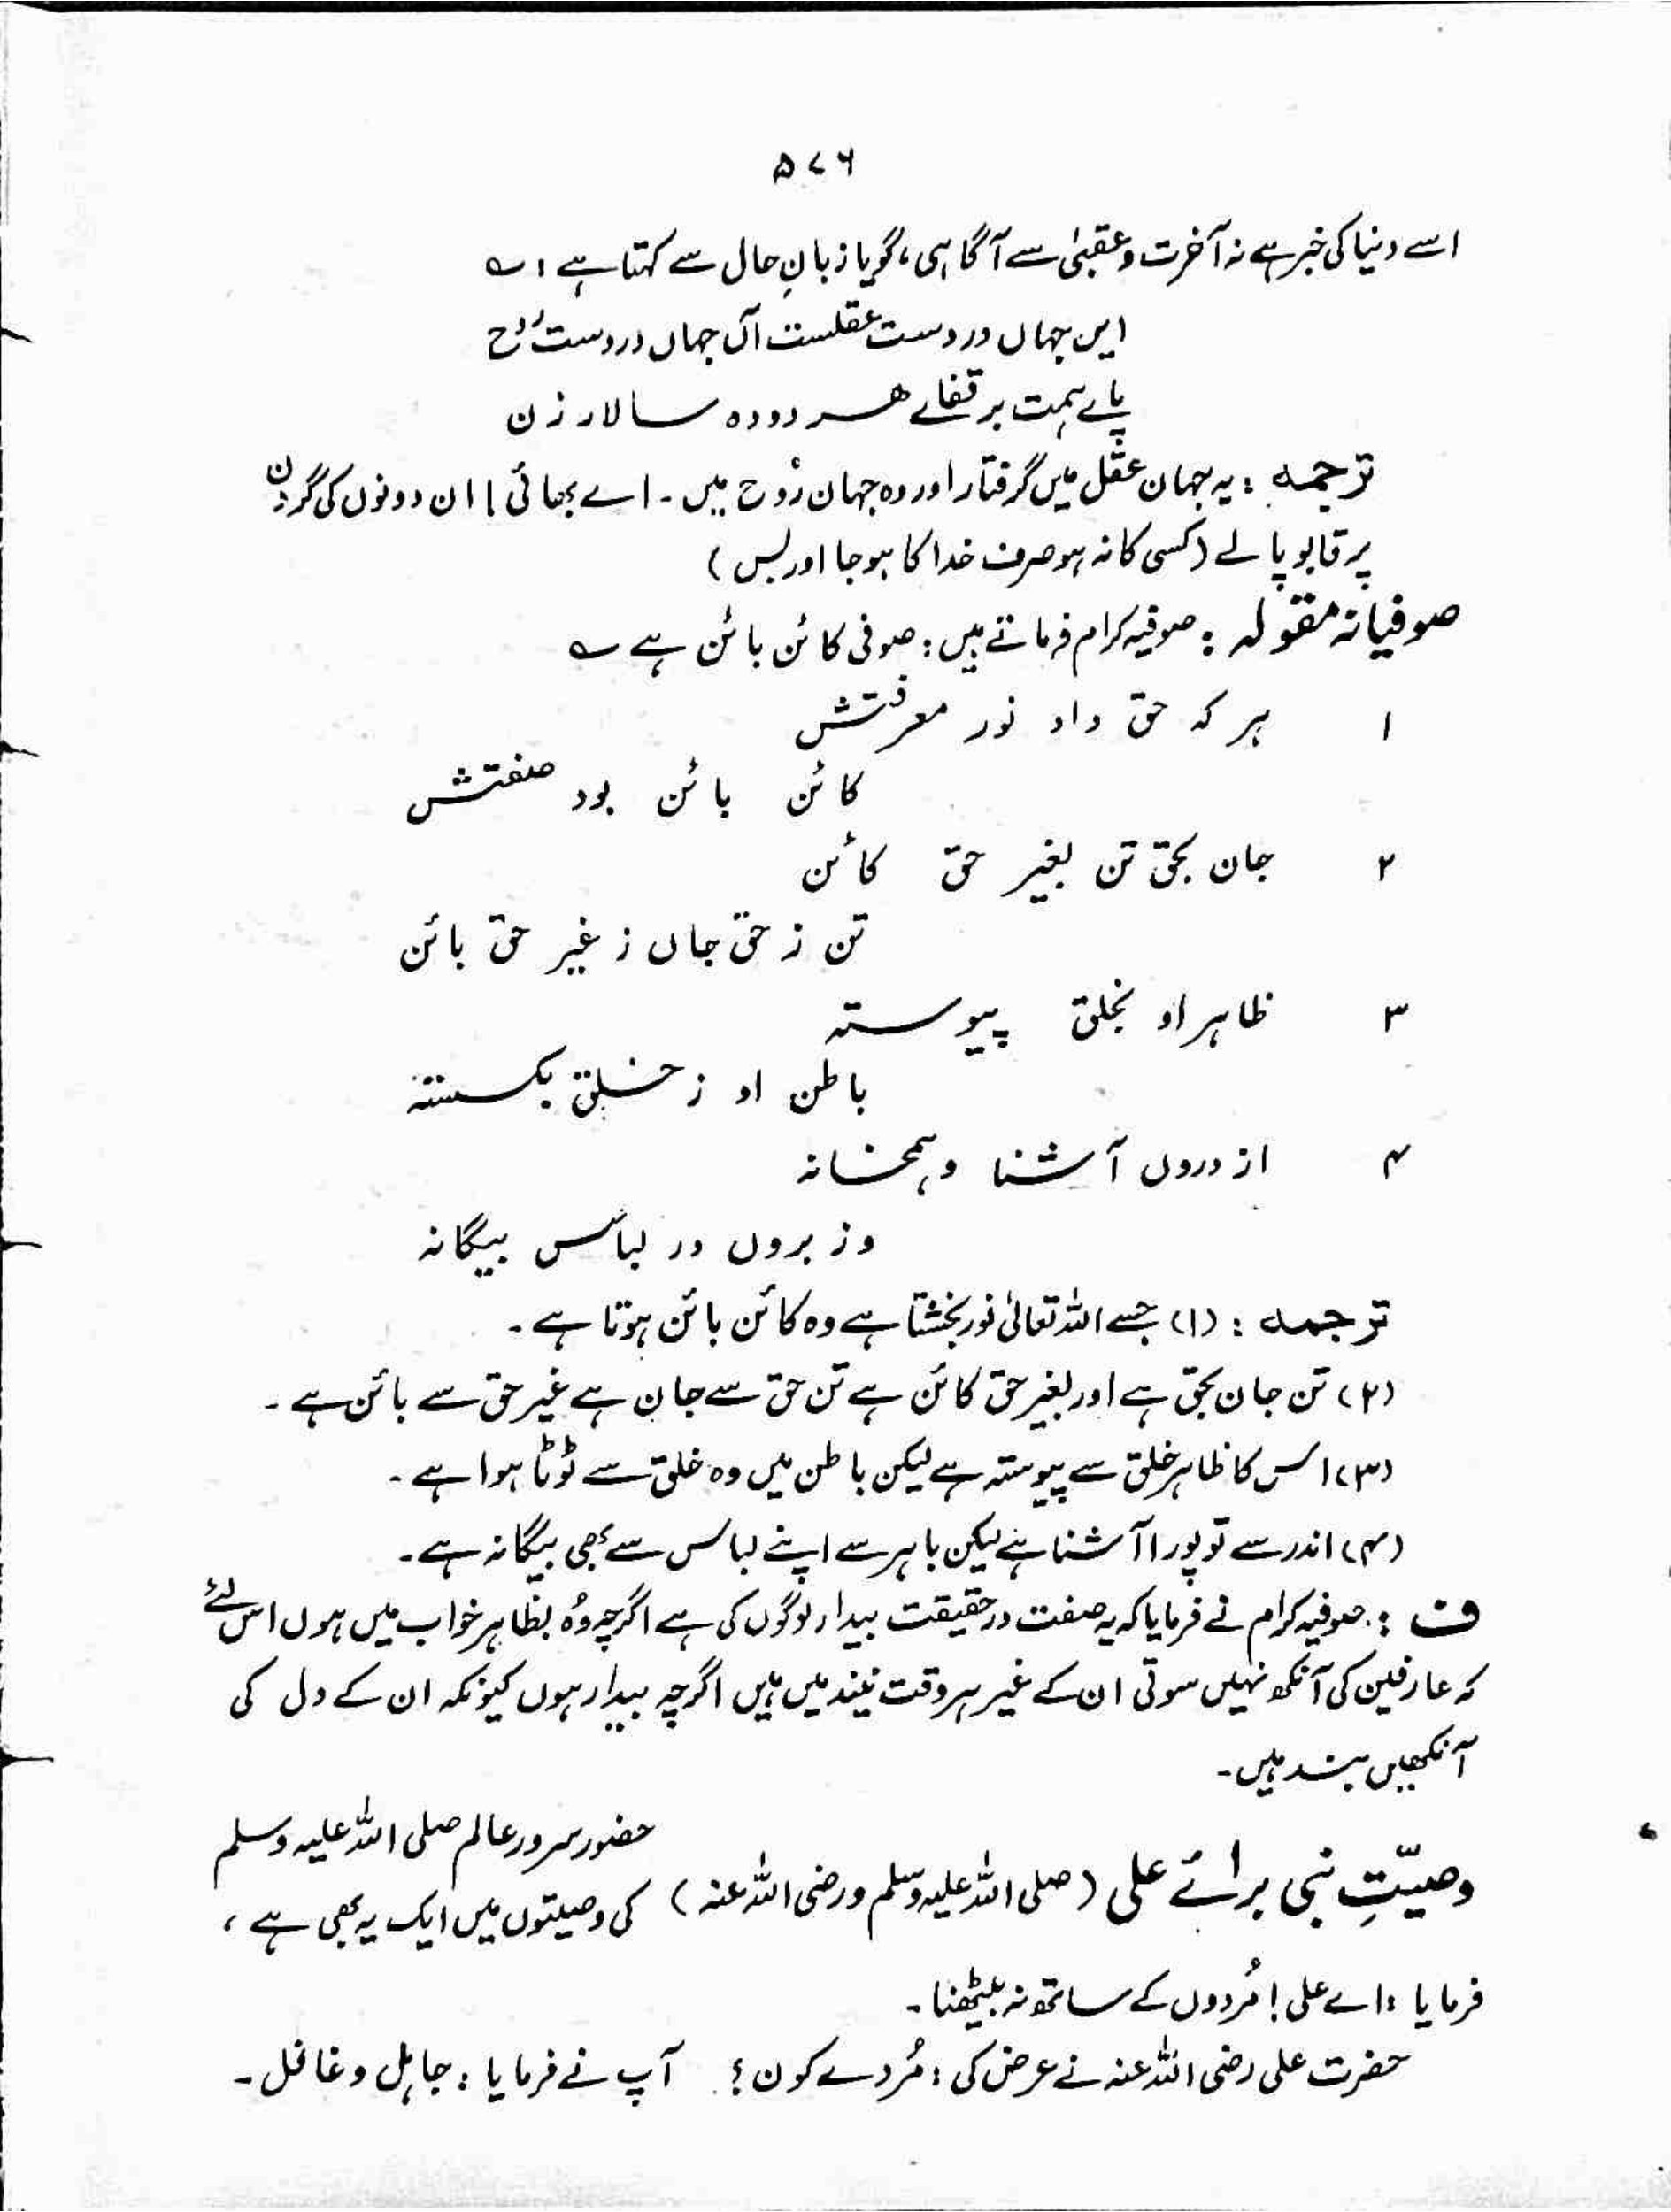 ۵۷۶
اسے دنیا کی خبر ہے نہ آخرت و عقبیٰ سے آگاہی، گویا زبانِ حال سے کہتا ہے : ؎
ایں جہاں در دست عقلست آں جہاں در دست رُوح
پائے ہمت بر قفائے ھر دو دہ سالار زن
ترجمہ : یہ جہان عقل میں گرفتار اور وہ جہان رُوح میں ۔ اے بھائی ! ان دونوں کی گردن
پر قابو پا لے (کسی کا نہ ہو صرف خدا کا ہو جا اور بس )
صوفیانہ مقولہ : صوفیہ کرام فرماتے ہیں : صوفی کائن بائن ہے ؎
۱ ہر کہ حق داد نور معرفتش
کائن بائن بود صفتش
۲ جان بحق تن بغیر حق کائن
تن ز حق جاں ز غیر حق بائن
۳ ظاہر او بخلق پیوستہ
باطن او ز خلق بگسستہ
۴ از دروں آشنا و ہمخانہ
وز بروں در لباس بیگانہ
ترجمہ : (۱) جسے اللہ تعالیٰ نور بخشتا ہے وہ کائن بائن ہوتا ہے ۔
(۲) تن جان بحق ہے اور بغیر حق کائن ہے تن حق سے جان ہے غیر حق سے بائن ہے ۔
(۳) اس کا ظاہر خلق سے پیوستہ ہے لیکن باطن میں وہ خلق سے ٹوٹا ہوا ہے ۔
(۴) اندر سے تو پورا آشنا ہے لیکن باہر سے اپنے لباس سے بھی بیگانہ ہے ۔
ف : صوفیہ کرام نے فرمایا کہ یہ صفت در حقیقت بیدار لوگوں کی ہے اگرچہ وُہ بظاہر خواب میں ہوں اس لئے
کہ عارفین کی آنکھ نہیں سوتی ان کے غیر ہر وقت نیند میں ہیں اگرچہ بیدار ہوں کیونکہ ان کے دل کی
آنکھیں بند ہیں ۔
حضور سرور عالم صلی اللہ علیہ وسلم
وصیّتِ نبی برائے علی ( صلی اللہ علیہ وسلم و رضی اللہ عنہ ) کی وصیتوں میں ایک یہ بھی ہے ،
فرمایا : اے علی ! مُردوں کے ساتھ نہ بیٹھنا ۔
حضرت علی رضی اللہ عنہ نے عرض کی : مُردے کون ؟ آپ نے فرمایا : جاہل و غافل ۔